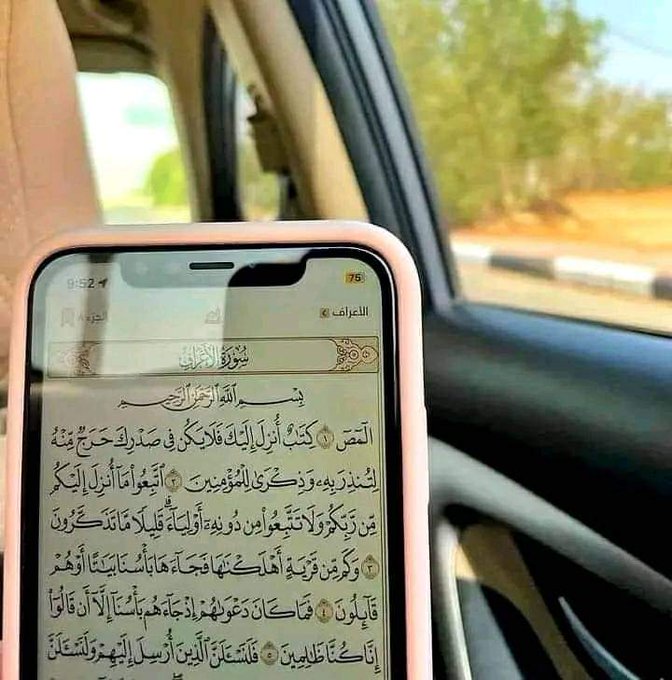 9:52
75
الأعراف
الجزء ٨
سُورَةُ الأَعْرَافِ
بِسْمِ اللَّهِ الرَّحْمَٰنِ الرَّحِيمِ
الٓمٓصٓ ١ كِتَٰبٌ أُنزِلَ إِلَيْكَ فَلَا يَكُن فِى صَدْرِكَ حَرَجٌ مِّنْهُ
لِتُنذِرَ بِهِۦ وَذِكْرَىٰ لِلْمُؤْمِنِينَ ٢ ٱتَّبِعُوا۟ مَآ أُنزِلَ إِلَيْكُم
مِّن رَّبِّكُمْ وَلَا تَتَّبِعُوا۟ مِن دُونِهِۦٓ أَوْلِيَآءَ ۗ قَلِيلًا مَّا تَذَكَّرُونَ
٣ وَكَم مِّن قَرْيَةٍ أَهْلَكْنَٰهَا فَجَآءَهَا بَأْسُنَا بَيَٰتًا أَوْ هُمْ
قَآئِلُونَ ٤ فَمَا كَانَ دَعْوَىٰهُمْ إِذْ جَآءَهُم بَأْسُنَآ إِلَّآ أَن قَالُوٓا۟
إِنَّا كُنَّا ظَٰلِمِينَ ٥ فَلَنَسْـَٔلَنَّ ٱلَّذِينَ أُرْسِلَ إِلَيْهِمْ وَلَنَسْـَٔلَنَّ